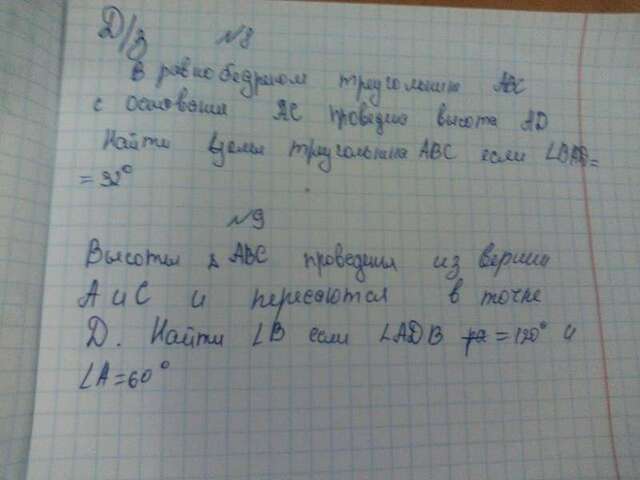 Д/з №8
В равнобедреном треугольнике ABC
с основания AC проведина высота AD
Найти углы треугольника ABC если
= 32°
№9
Высоты ∆ ABC проведины из вершин
A и C и пересаются в точке
D. Найти ∠B если ∠ADB = 120° и
∠A=60°